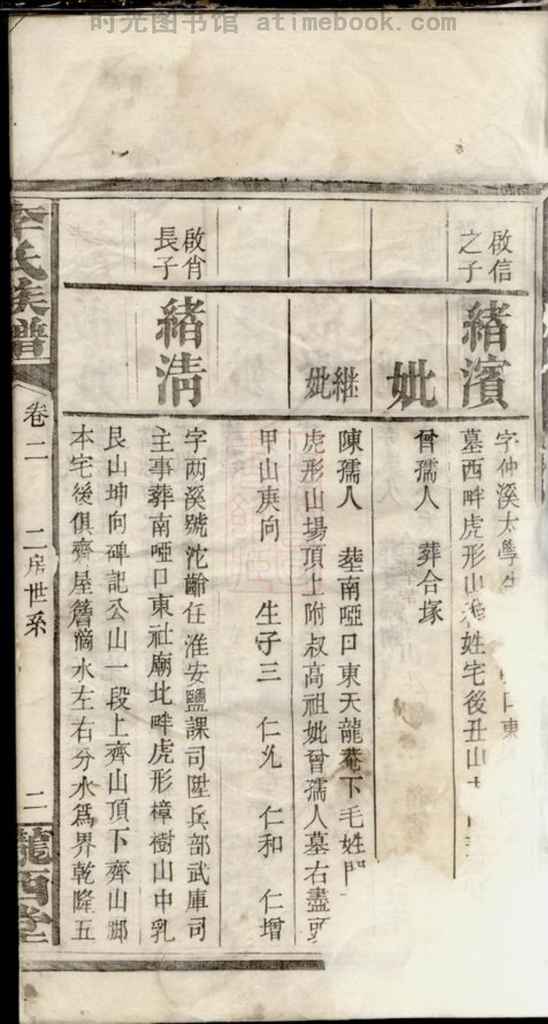 时光图书馆 atimebook.com
啟信之子
緒濱
字仲溪太學
口東
墓西畔虎形山
姓宅後丑山
妣
曾孺人 葬合塚
継妣
陳孺人 塟南啞口東天龍菴下毛姓門
虎形山場頂上附叔高祖妣曾孺人墓右盡頭
甲山庚向 生子三 仁光 仁和 仁增
啟肖長子
緒清
字两溪號沈齡任淮安鹽課司陞兵部武庫司
主事葬南啞口東社廟北畔虎形樟樹山中乳
艮山坤向碑記公山一段上齊山頂下齊山脚
本宅後俱齊屋簷滴水左右分水爲界乾隆五
李氏族譜
卷二
二房世系
二
隴西堂